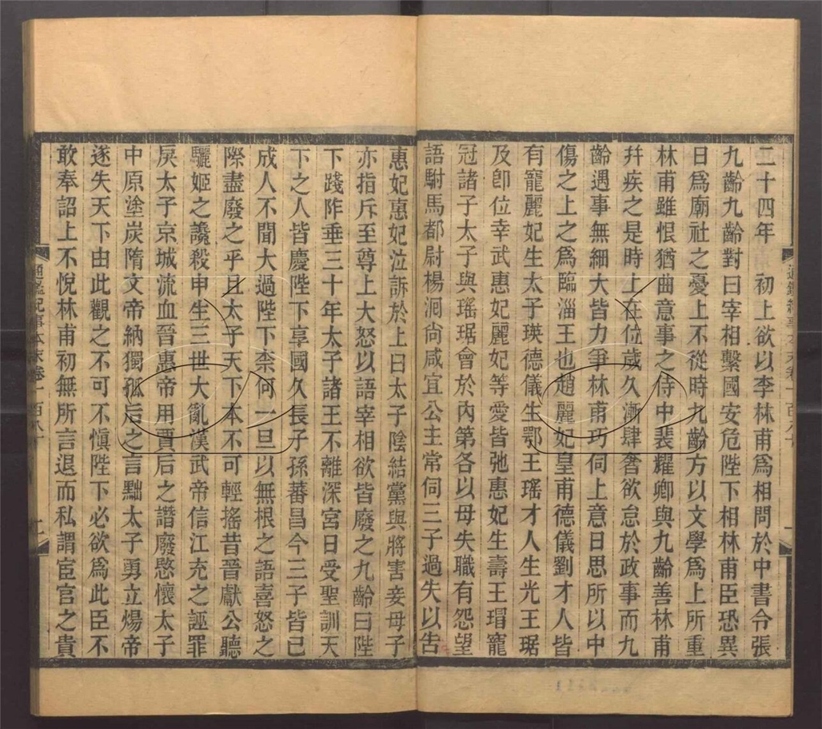 二十四年　初上欲以李林甫爲相問於中書令張
九齡九齡對曰宰相繫國安危陛下相林甫臣恐異
日爲廟社之憂上不從時九齡方以文學爲上所重
林甫雖恨猶曲意事之侍中裴耀卿與九齡善林甫
幷疾之是時上在位歲久漸肆奢欲怠於政事而九
齡遇事無細大皆力爭林甫巧伺上意日思所以中
傷之上之爲臨淄王也趙麗妃皇甫德儀劉才人皆
有寵麗妃生太子瑛德儀生鄂王瑤才人生光王琚
及卽位幸武惠妃麗妃等愛皆弛惠妃生壽王瑁寵
冠諸子太子與瑤琚會於內第各以母失職有怨望
語駙馬都尉楊洄尚咸宜公主常伺三子過失以告
惠妃惠妃泣訴於上曰太子陰結黨與將害妾母子
亦指斥至尊上大怒以語宰相欲皆廢之九齡曰陛
下踐阼垂三十年太子諸王不離深宮日受聖訓天
下之人皆慶陛下享國久長子孫蕃昌今三子皆已
成人不聞大過陛下柰何一旦以無根之語喜怒之
際盡廢之乎且太子天下本不可輕搖昔晉獻公聽
驪姬之讒殺申生三世大亂漢武帝信江充之誣罪
戾太子京城流血晉惠帝用賈后之譖廢愍懷太子
中原塗炭隋文帝納獨孤后之言黜太子勇立煬帝
遂失天下由此觀之不可不愼陛下必欲爲此臣不
敢奉詔上不悅林甫初無所言退而私謂宦官之貴
通鑑紀事本末卷一百八十